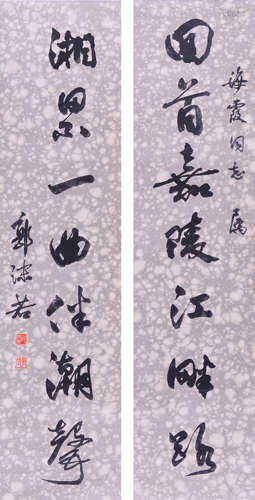 海霞同志 属
回首嘉陵江畔路
湘累一曲伴潮声
郭沫若